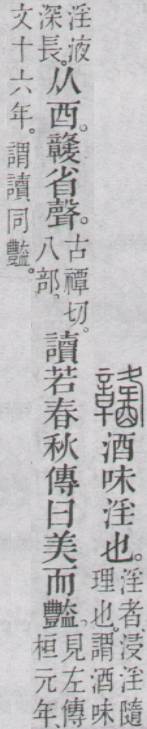 酒味淫也。淫者、浸淫隨
理也。謂酒味
淫液
深長。从酉。竷省聲。古禫切。
八部。讀若春秋傳曰美而豔。見左傳
桓元年、
文十六年。謂讀同豔。